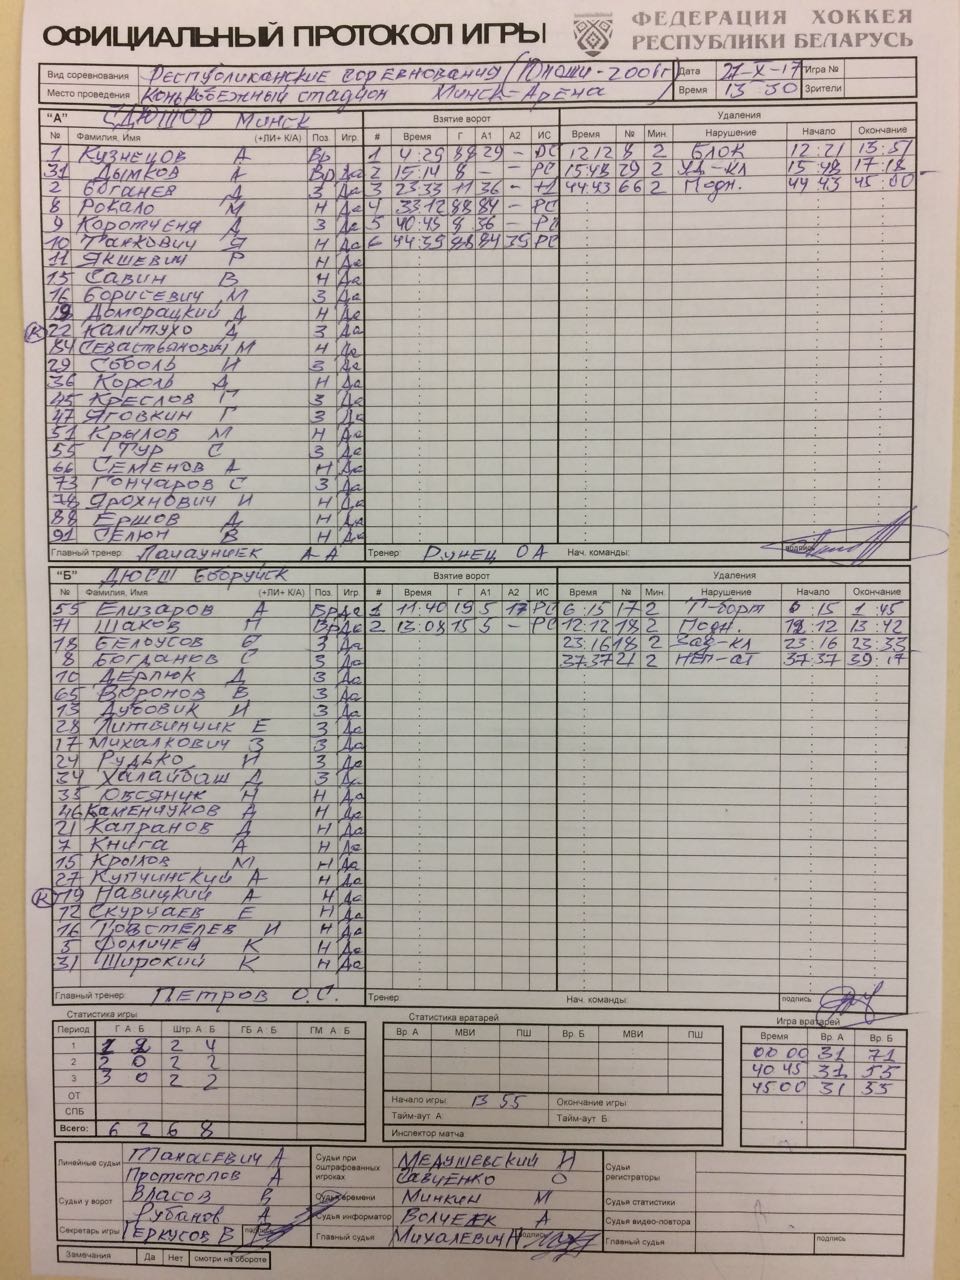 ОФИЦИАЛЬНЫЙ ПРОТОКОЛ ИГРЫ
ФЕДЕРАЦИЯ ХОККЕЯ
РЕСПУБЛИКИ БЕЛАРУСЬ
Вид соревнования Республиканские соревнования (Юноши-2006г) Дата 27-X-17 Игра №
Место проведения Конькобежный стадион Минск-Арена Время 13 30 Зрители
"А" СДЮШОР Минск Взятие ворот Удаления
№ Фамилия, Имя (+ЛИ+ К/А) Поз. Игр. # Время Г А1 А2 ИС Время № Мин. Нарушение Начало Окончание
1 Кузнецов А Вр 1 4:29 88 29 - РС 12 12 8 2 Блок 12:21 13:51
31 Дымков А Вр Да 2 15:14 8 - РС 15:48 29 2 Уд-кл 15:48 17:18
2 Боганев Д З Да 3 23:33 11 36 - +1 44:43 66 2 Подн. 44 43 45:00
8 Рокало М Н Да 4 33 12 88 84 - РС
9 Коротченя Д З Да 5 40:45 8 36 - РС
10 Танкович Я Н Да 6 44:35 88 84 35 РС
11 Якшевич Р Н Да
15 Савин В Н Да
16 Борисевич М З Да
19 Доморацкий Д Н Да
К 22 Калитухо Д З Да
84 Севастьянович М Н Да
29 Соболь И З Да
36 Король Д Н Да
45 Креслов П З Да
47 Яговкин Г З Да
51 Крылов М Н Да
55 Тур С З Да
66 Семенов А Н Да
73 Гончаров С З Да
78 Ярохнович И Н Да
88 Ершов Д Н Да
91 Селюн В Н Да
Главный тренер: А А Тренер: Дунец О А Нач. команды: подпись
"Б" ДЮСШ Бобруйск Взятие ворот Удаления
№ Фамилия, Имя (+ЛИ+ К/А) Поз. Игр. # Время Г А1 А2 ИС Время № Мин. Нарушение Начало Окончание
55 Елизаров А Вр Да 1 11:40 19 5 17 РС 6:15 17 2 П-борт 6:15 7:45
71 Шаков П Вр Да 2 13:08 15 5 - РС 12:12 18 2 Подн. 12:12 13:42
18 Белоусов Е З 23:16 18 2 Зад-кл 23:16 23:33
8 Богданов С З Да 37:37 21 2 Неп-ат 37:37 39:17
10 Дерлюк Д З Да
65 Воронов В З Да
13 Дубовик И З Да
28 Литвинчик Е З Да
17 Михалкович З З Да
24 Рудько И З Да
34 Халайбаш Д З Да
33 Овсяник Н Н Да
46 Каменчуков А Н Да
21 Капранов Д Н Да
7 Книга А Н Да
15 Крылов М Н Да
27 Купчинский А Н Да
К 19 Навицкий А Н Да
12 Скурчаев Е Н Да
16 Товстелев И Н Да
5 Фомичев К Н Да
31 Широкий К Н Да
Главный тренер: Петров О.С. Тренер: Нач. команды: подпись
Статистика игры Статистика вратарей Игра вратарей
Период Г А Б Штр. А Б ГБ А Б ГМ А Б Вр. А МВИ ПШ Вр. Б МВИ ПШ Время Вр. А Вр. Б
1 1 2 2 4 00 00 31 71
2 2 0 2 2 40 45 31 55
3 3 0 2 2 45 00 31 55
ОТ Начало игры 13 55 Окончание игры
СПБ Тайм-аут А: Тайм-аут Б:
Всего: 6 2 6 8 Инспектор матча
Линейные судьи Танасевич А Судьи при оштрафованных игроках Медушевский И Судьи регистраторы
Протополов А Савченко О
Судьи у ворот Власов В Судья времени Минкин М Судья статистики
Рубанов А Судья информатор Волчек А Судья видео-повтора
Секретарь игры Геркусов В подпись Главный судья Михалевич Н подпись Главный судья подпись
Замечания Да Нет смотри на обороте